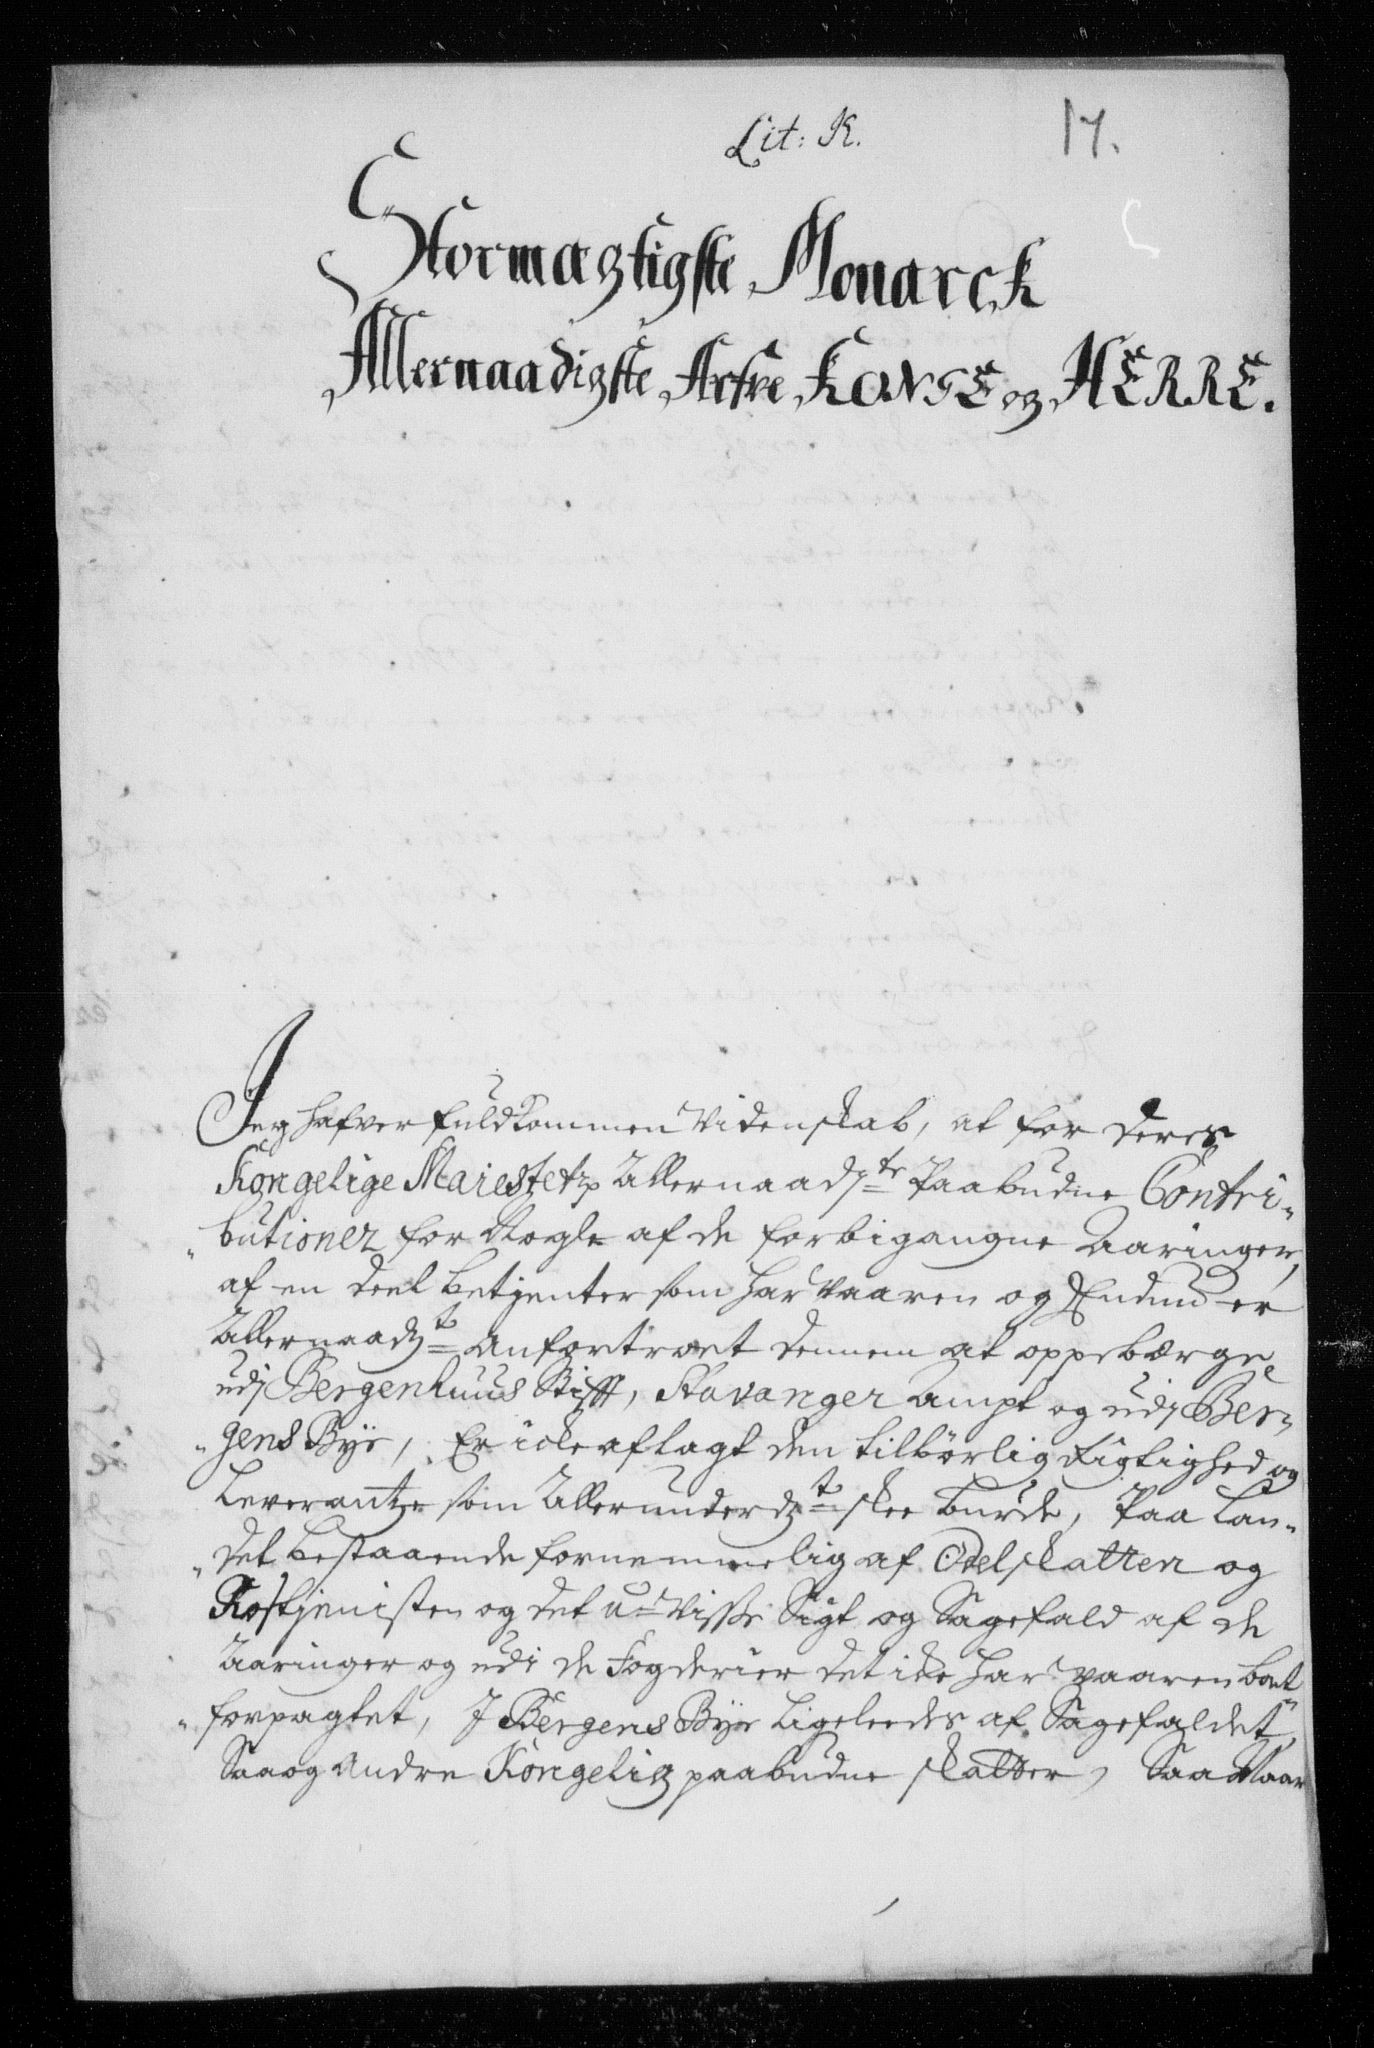 Lit: K.
17.
Stormagtigste Monarck
Allernaadigste Arfve KONGE og HERRE.
Jeg hafver fuldkommen Videnskab, at for Deres
Kongelige Maiestetz Allernaadigste Paabudne Contri-
butioner for Nogle af de forbigangne Aaringer,
af en deel betjenter som har vaaren og Endnu er
Allernaadigst anfortroet dennem at oppebærge
udj Bergenhuus Stifft, Stavanger Ampt og udj Ber-
gens Bÿe, Er icke aflagt den tilbörlig Rigtighed og
Leverantze som Allerunderdigst skee burde, Paa Lan-
det bestaaende fornemmelig af Odelskatten og
Rostjenisten og det uvisse Sigt og Sagefald af de
Aaringer og udi de Fogderier det icke har vaaren bort
forpagtet, J Bergens Bÿe Ligeleedes af Sagefaldet,
Saa og Andre Kongelig paabudne skatter, Saa Vaar